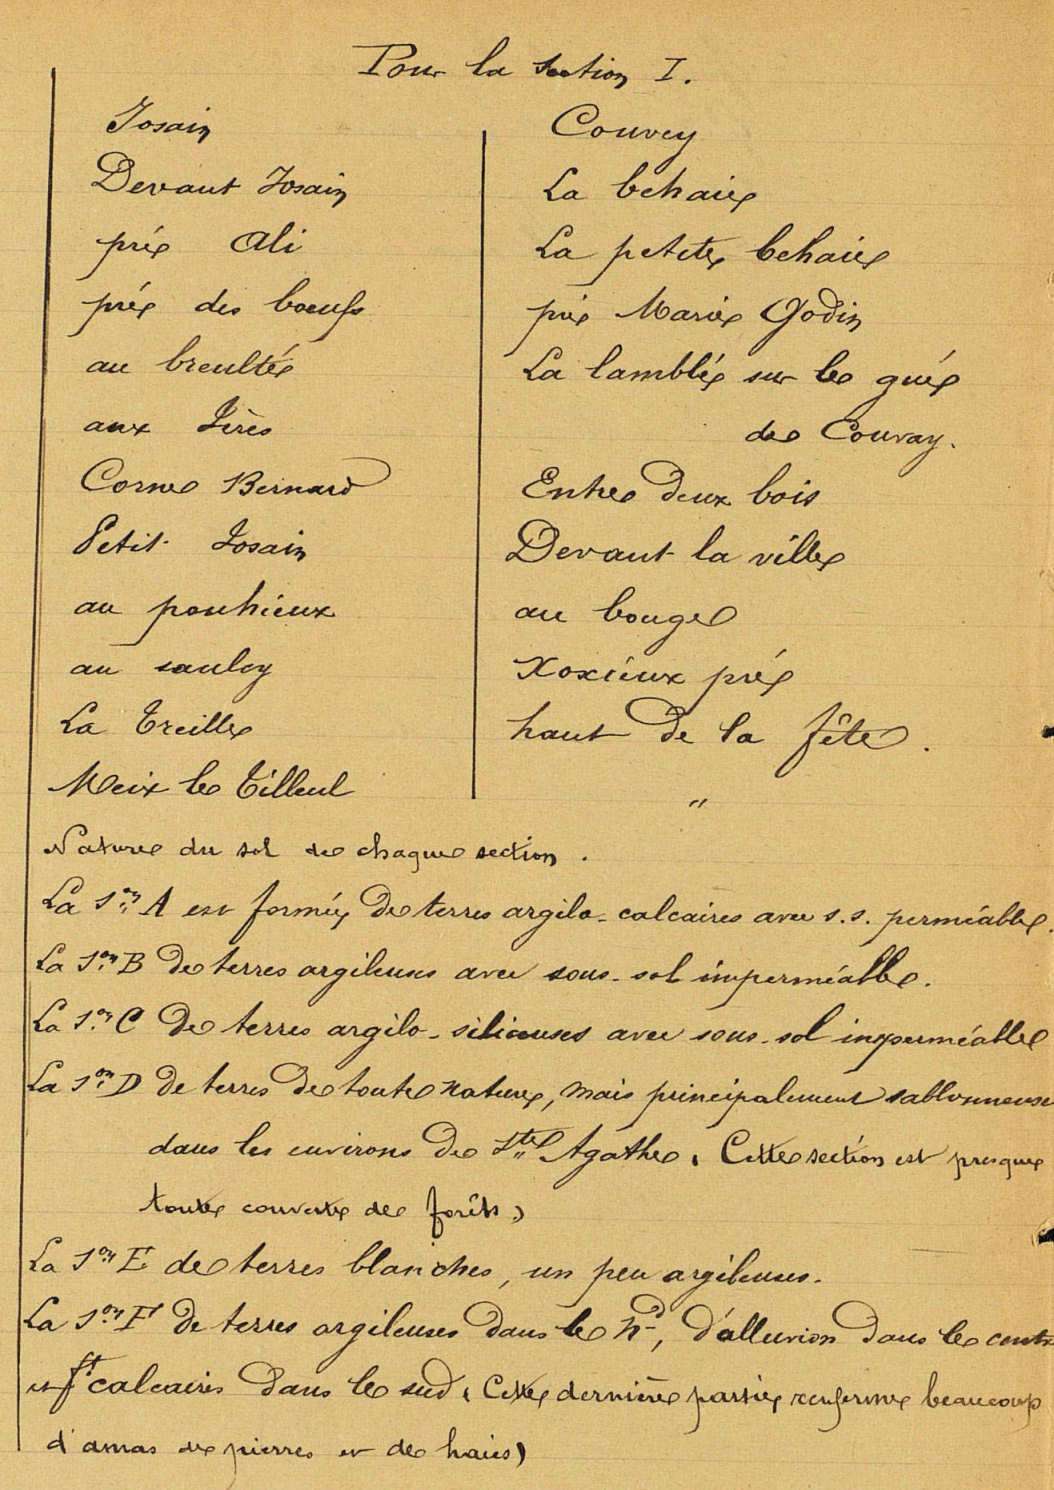 Pour la section I.
Josain
Devant Josain
prés Ali
prés des boeufs
au breulté
aux Fères
Corne Bernard
Petit Josain
au pouhieux
au saulcy
La Treille
Meix le Tilleul
Couvey
La behaie
La petite behaie
prés Marie Godin
La lamblée sur le gué
de Couvay.
Entre deux bois
Devant la ville
au bouge
Xoxieux prés
haut de la fête.
"
Nature du sol de chaque section.
La Son A est formée de terres argilo-calcaires avec s.s. perméable.
La Son B de terres argileuses avec sous-sol imperméable.
La Son C de terres argilo-siliceuses avec sous-sol imperméable
La Son D de terres de toute nature, mais principalement sablonneuse
dans les environs de Ste Agathe. Cette section est presque
toute couverte de forêts)
La Son E de terres blanches, un peu argileuses.
La Son F de terres argileuses dans le nd, d'alluvion dans le centre
et ft calcaires dans le sud. Cette dernière partie renferme beaucoup
d'amas de pierres et de haies)